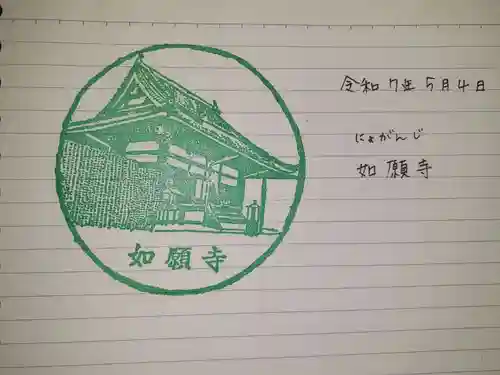 如願寺
令和7年5月4日
にょがんじ
如願寺